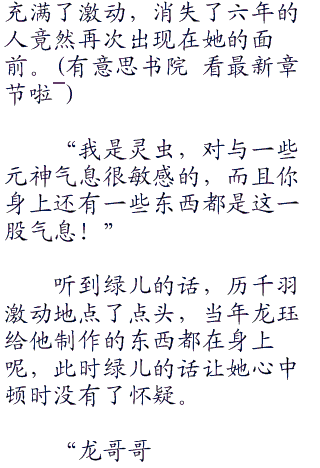 充满了激动，消失了六年的
人竟然再次出现在她的面
前。(有意思书院 看最新章
节啦¯)
“我是灵虫，对与一些
元神气息很敏感的，而且你
身上还有一些东西都是这一
股气息！”
听到绿儿的话，历千羽
激动地点了点头，当年龙珏
给他制作的东西都在身上
呢，此时绿儿的话让她心中
顿时没有了怀疑。
“龙哥哥